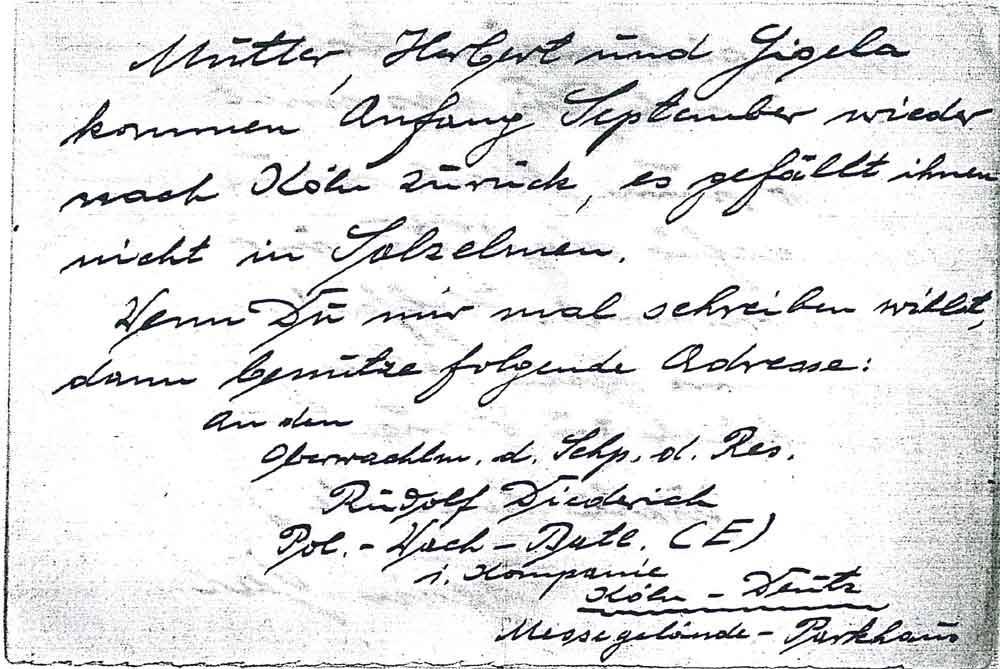 Mutter, Herbert und Gisela
kommen Anfang September wieder
nach Köln zurück, es gefällt ihnen
nicht in Salzelmen.
Wenn Du mir mal schreiben willst,
dann benutze folgende Adresse:
An den
Oberwachtm. d. Schp. d. Res.
Rudolf Diederich
Pol. - Wach - Batl. (E)
1. Kompanie
Köln - Deutz
Messegelände - Parkhaus